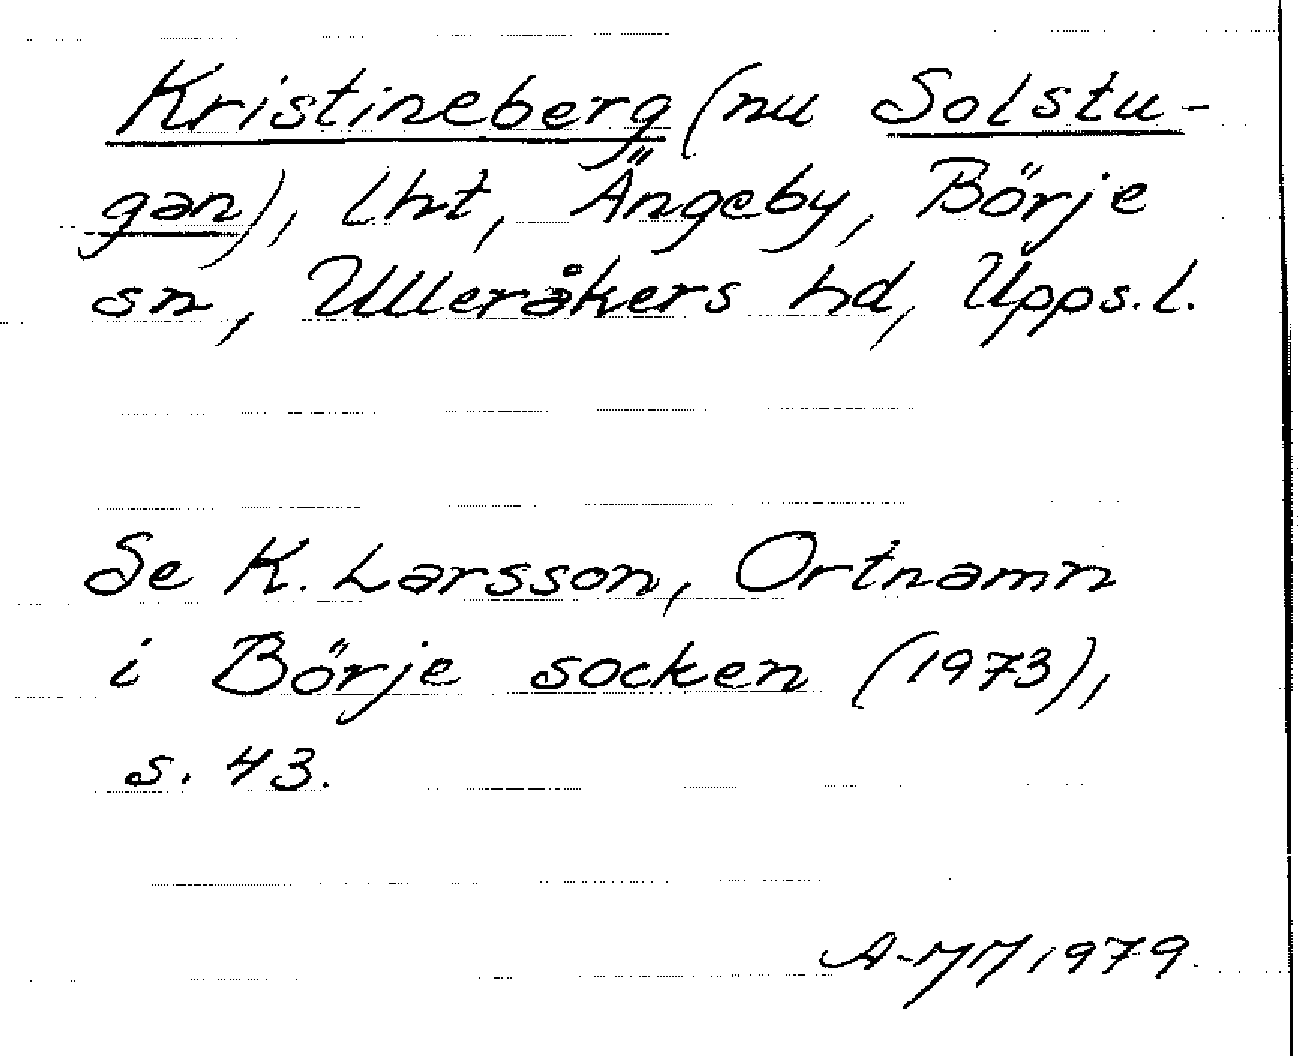 Kristineberg (nu Solstu-
gan), lht, Ängeby, Börje
sn, Ulleråkers hd, Upps.l.
Se K. Larsson, Ortnamn
i Börje socken (1973),
s. 43.
A-MM 1979.